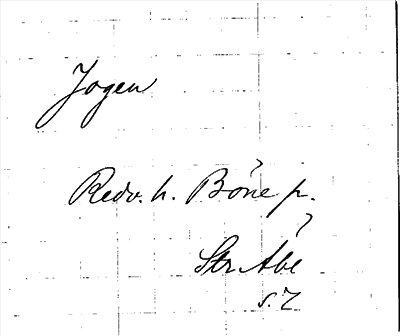 Jogen
Redv. h. Böne p.
Str Åbe
s. 7